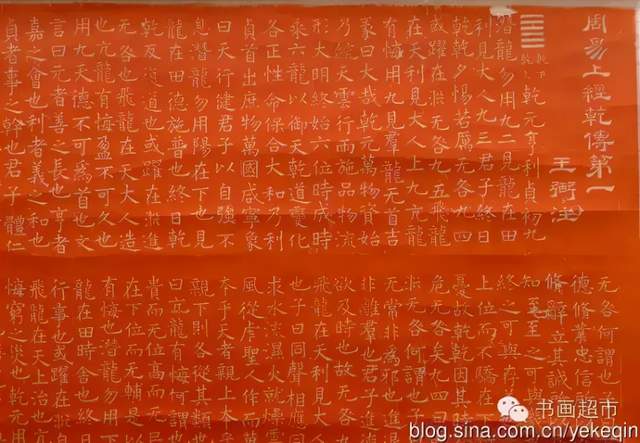 周易上經乾傳第一
王弼注
䷀ 乾下乾上 乾元亨利貞初九
潛龍勿用九二見龍在田
利見大人九三君子終日
乾乾夕惕若厲无咎九四
或躍在淵无咎九五飛龍
在天利見大人上九亢龍
有悔用九見羣龍无首吉
彖曰大哉乾元萬物資始
乃統天雲行雨施品物流
形大明終始六位時成時
乘六龍以御天乾道變化
各正性命保合大和乃利
貞首出庶物萬國咸寧象
曰天行健君子以自強不
息潛龍勿用陽在下也見
龍在田德施普也終日乾
乾反復道也或躍在淵進
无咎也飛龍在天大人造
也亢龍有悔盈不可久也
用九天德不可為首也文
言曰元者善之長也亨者
嘉之會也利者義之和也
貞者事之幹也君子體仁
无咎何謂也
德脩業忠信
脩辭立其誠
知至至之可
終之可與存
上位而不驕在下
憂故乾乾因其時
危无咎矣九四曰
无咎何謂也子
无常非為邪也進退
非離羣也君子進
欲及時也故无咎
飛龍在天利見大
也子曰同聲相應同
求水流濕火就燥雲
風從虎聖人作而萬
本乎天者親上本乎
親下則各從其類也
曰亢龍有悔何謂也
貴而无位高而无民
在下位而无輔是以
有悔也潛龍勿用
龍在田時舍也終日
行事也或躍在淵自
飛龍在天上治也亢
悔窮之災也乾元用
书画超市
blog.sina.com.cn/yekeqin